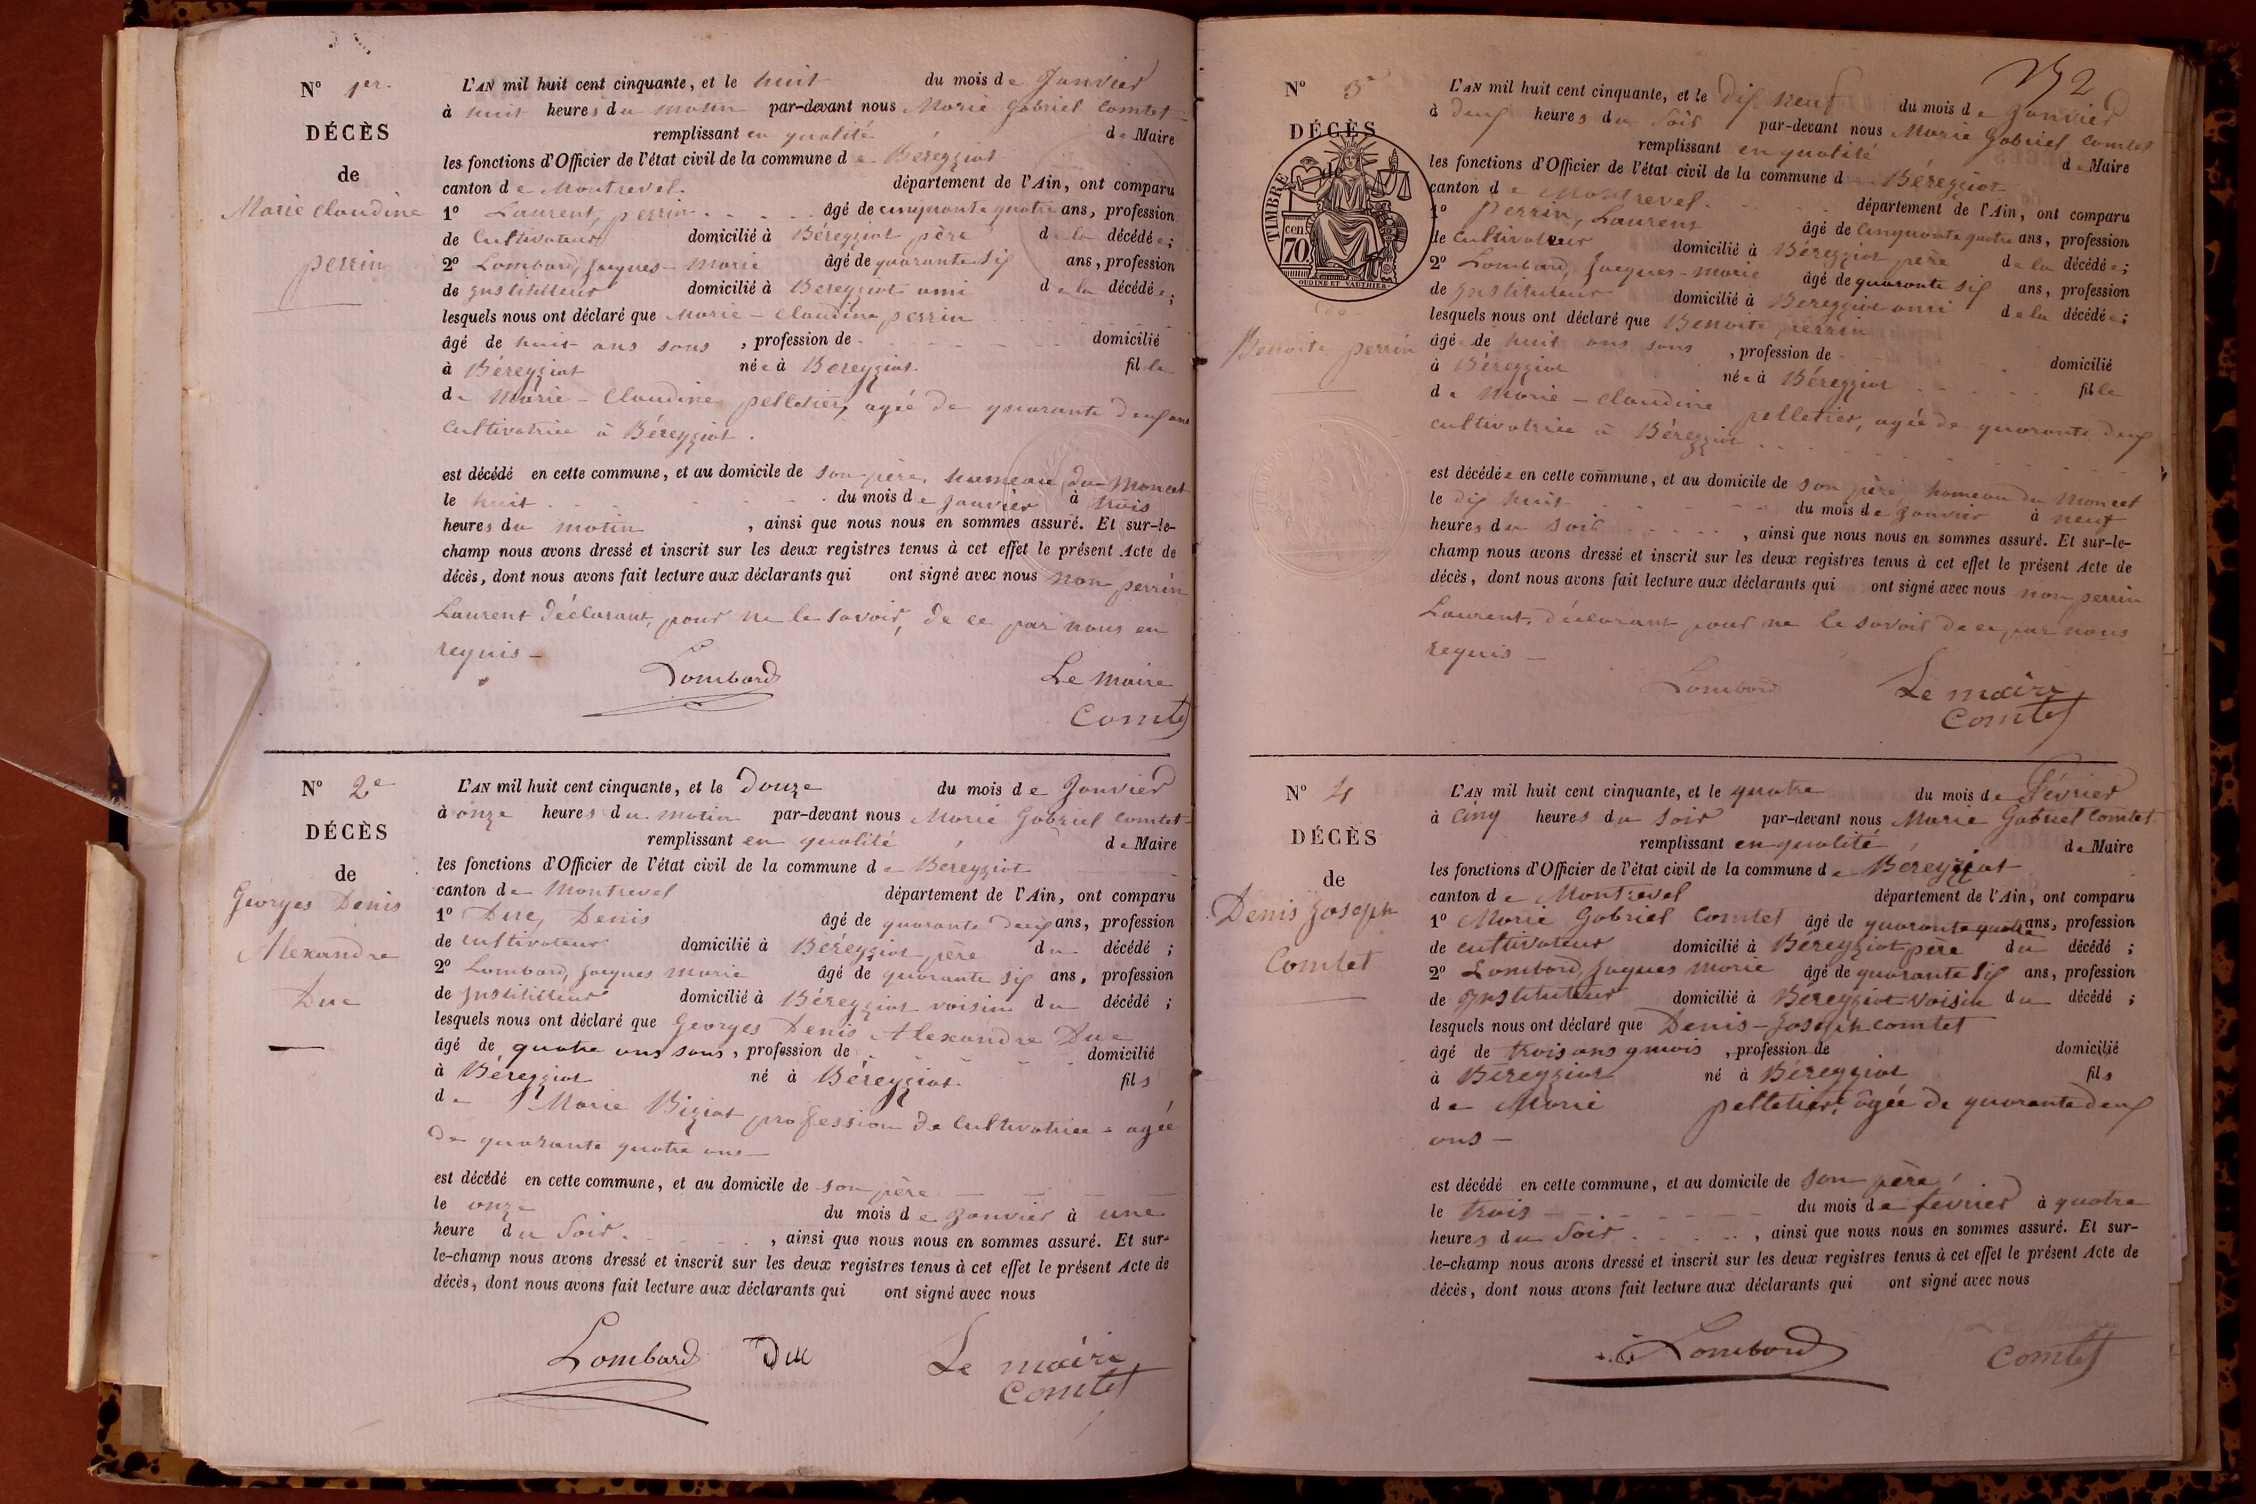 N° 1er
DÉCÈS
de
Marie Claudine
perrin
L'AN mil huit cent cinquante, et le huit du mois de Janvier
à huit heures du matin par-devant nous Marie Gabriel Comtet
remplissant en qualité de Maire
les fonctions d'Officier de l'état civil de la commune de Béreyziat
canton de Montrevel. département de l'Ain, ont comparu
1° Laurent, perrin âgé de cinquante quatre ans, profession
de Cultivateur domicilié à Béreyziat père de la décédée;
2° Lombard, Jacques-Marie âgé de quarante six ans, profession
de Instituteur domicilié à Béreyziat ami de la décédée;
lesquels nous ont déclaré que Marie-Claudine perrin
âgé de huit ans sons, profession de domicilié
à Béreyziat née à Béreyziat. fille
de Marie-Claudine pelletier, agée de quarante deux ans
Cultivatrice à Béreyziat.
est décédé en cette commune, et au domicile de son père, hameau du Moncet
le huit du mois de Janvier à trois
heures du matin, ainsi que nous nous en sommes assuré. Et sur-le-
champ nous avons dressé et inscrit sur les deux registres tenus à cet effet le présent Acte de
décès, dont nous avons fait lecture aux déclarants qui ont signé avec nous non perrin
Laurent déclarant, pour ne le savoir, de ce par nous en
requis-
Lombard Le Maire
Comtet
N° 2e
DÉCÈS
de
Georges Denis
Alexandre
Duc
L'AN mil huit cent cinquante, et le Douze du mois de Janvier
à onze heures du matin par-devant nous Marie Gabriel Comtet
remplissant en qualité de Maire
les fonctions d'Officier de l'état civil de la commune de Béreyziat
canton de Montrevel département de l'Ain, ont comparu
1° Duc, Denis âgé de quarante deux ans, profession
de cultivateur domicilié à Béreyziat père du décédé;
2° Lombard, Jacques Marie âgé de quarante six ans, profession
de Instituteur domicilié à Béreyziat voisin du décédé;
lesquels nous ont déclaré que Georges Denis Alexandre Duc
âgé de quatre ans sons, profession de domicilié
à Béreyziat né à Béreyziat. fils
de Marie Biziat profession de Cultivatrice - agée
de quarante quatre ans-
est décédé en cette commune, et au domicile de son père
le onze du mois de Janvier à une
heure du Soir, ainsi que nous nous en sommes assuré. Et sur-
le-champ nous avons dressé et inscrit sur les deux registres tenus à cet effet le présent Acte de
décès, dont nous avons fait lecture aux déclarants qui ont signé avec nous
Lombard Duc Le maire
Comtet
N° 3e
DÉCÈS
de
TIMBRE
cen
70
OUDINÉ ET VAUTHIER
Benoite perrin
L'AN mil huit cent cinquante, et le dix neuf du mois de Janvier
à deux heures du Soir par-devant nous Marie Gabriel Comtet
remplissant en qualité de Maire
les fonctions d'Officier de l'état civil de la commune d Béreyziat
canton de Montrevel département de l'Ain, ont comparu
1° Perrin, Laurent âgé de Cinquante quatre ans, profession
de Cultivateur domicilié à Béreyziat père de la décédée;
2° Lombard, Jacques-Marie âgé de quarante six ans, profession
de Instituteur domicilié à Béreyziat ami de la décédée;
lesquels nous ont déclaré que Benoite perrin
âgé de huit ans sons, profession de domicilié
à Béreyziat née à Béreyziat fille
de Marie-Claudine pelletier, agée de quarante deux
cultivatrice à Béreyziat
est décédée en cette commune, et au domicile de son père hameau du Moncet
le dix huit du mois de Janvier à neuf
heures du soir, ainsi que nous nous en sommes assuré. Et sur-le-
champ nous avons dressé et inscrit sur les deux registres tenus à cet effet le présent Acte de
décès, dont nous avons fait lecture aux déclarants qui ont signé avec nous non perrin
Laurent, déclarant pour ne le savoir de ce par nous
requis-
Lombard Le maire
Comtet
N° 4
DÉCÈS
de
Denis Joseph
Comtet
L'AN mil huit cent cinquante, et le quatre du mois de Février
à Cinq heures du Soir par-devant nous Marie Gabriel Comtet
remplissant en qualité de Maire
les fonctions d'Officier de l'état civil de la commune de Béreyziat
canton de Montrevel département de l'Ain, ont comparu
1° Marie Gabriel Comtet âgé de quarante quatre ans, profession
de cultivateur domicilié à Béreyziat père du décédé;
2° Lombard, Jaques Marie âgé de quarante six ans, profession
de Instituteur domicilié à Béreyziat-voisin du décédé;
lesquels nous ont déclaré que Denis-Joseph Comtet
âgé de trois ans 9 mois, profession de domicilié
à Béreyziat né à Béreyziat fils
de Marie pelletier, âgée de quarante deux
ans-
est décédé en cette commune, et au domicile de son père,
le trois du mois de fevrier à quatre
heures du Soir, ainsi que nous nous en sommes assuré. Et sur-
le-champ nous avons dressé et inscrit sur les deux registres tenus à cet effet le présent Acte de
décès, dont nous avons fait lecture aux déclarants qui ont signé avec nous
Lombard Comtet